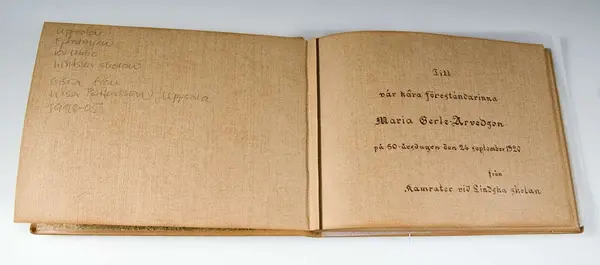 Uppsala
Lindska skolan
Gåva från
Uppsala
Till
vår kära föreståndarinna
Maria Gerle-Arvedson
på 60-årsdagen den 24 september 1920
från
Kamrater vid Lindska skolan